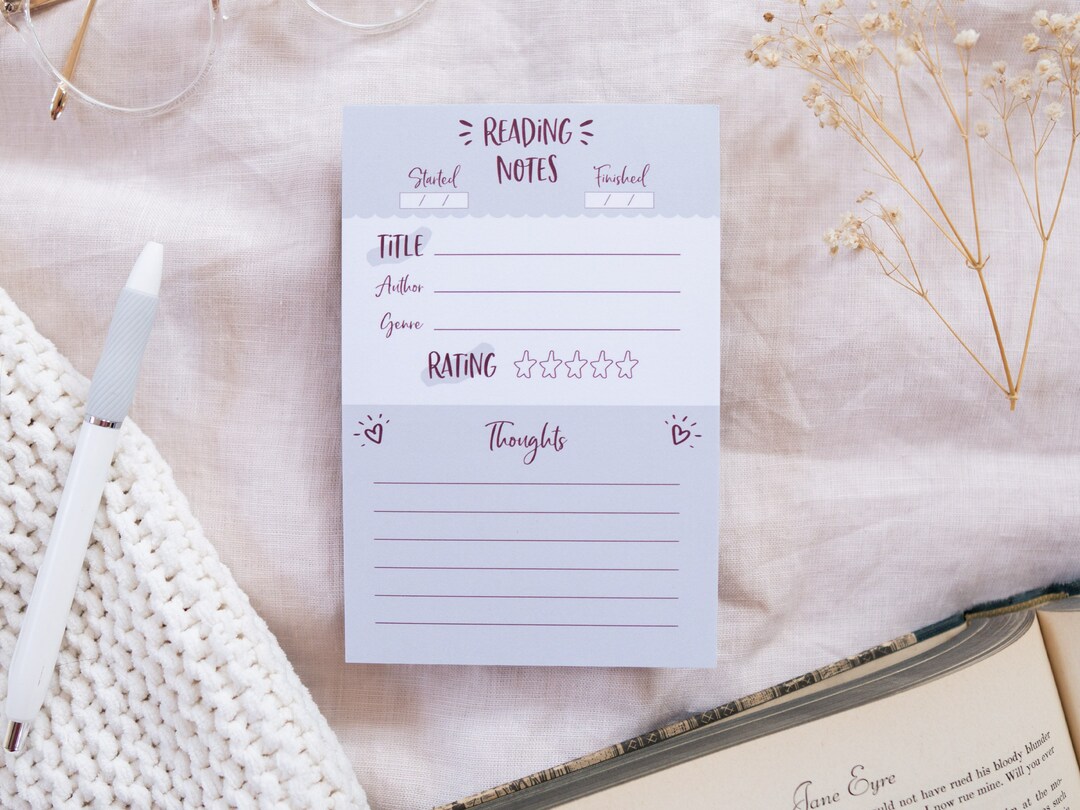 READING
NOTES
Started
/ /
Finished
/ /
TITLE
Author
Genre
RATING
Thoughts
Jane Eyre
not have rued his bloody blunder
now rue mine. Will you ever
at the mo-
such